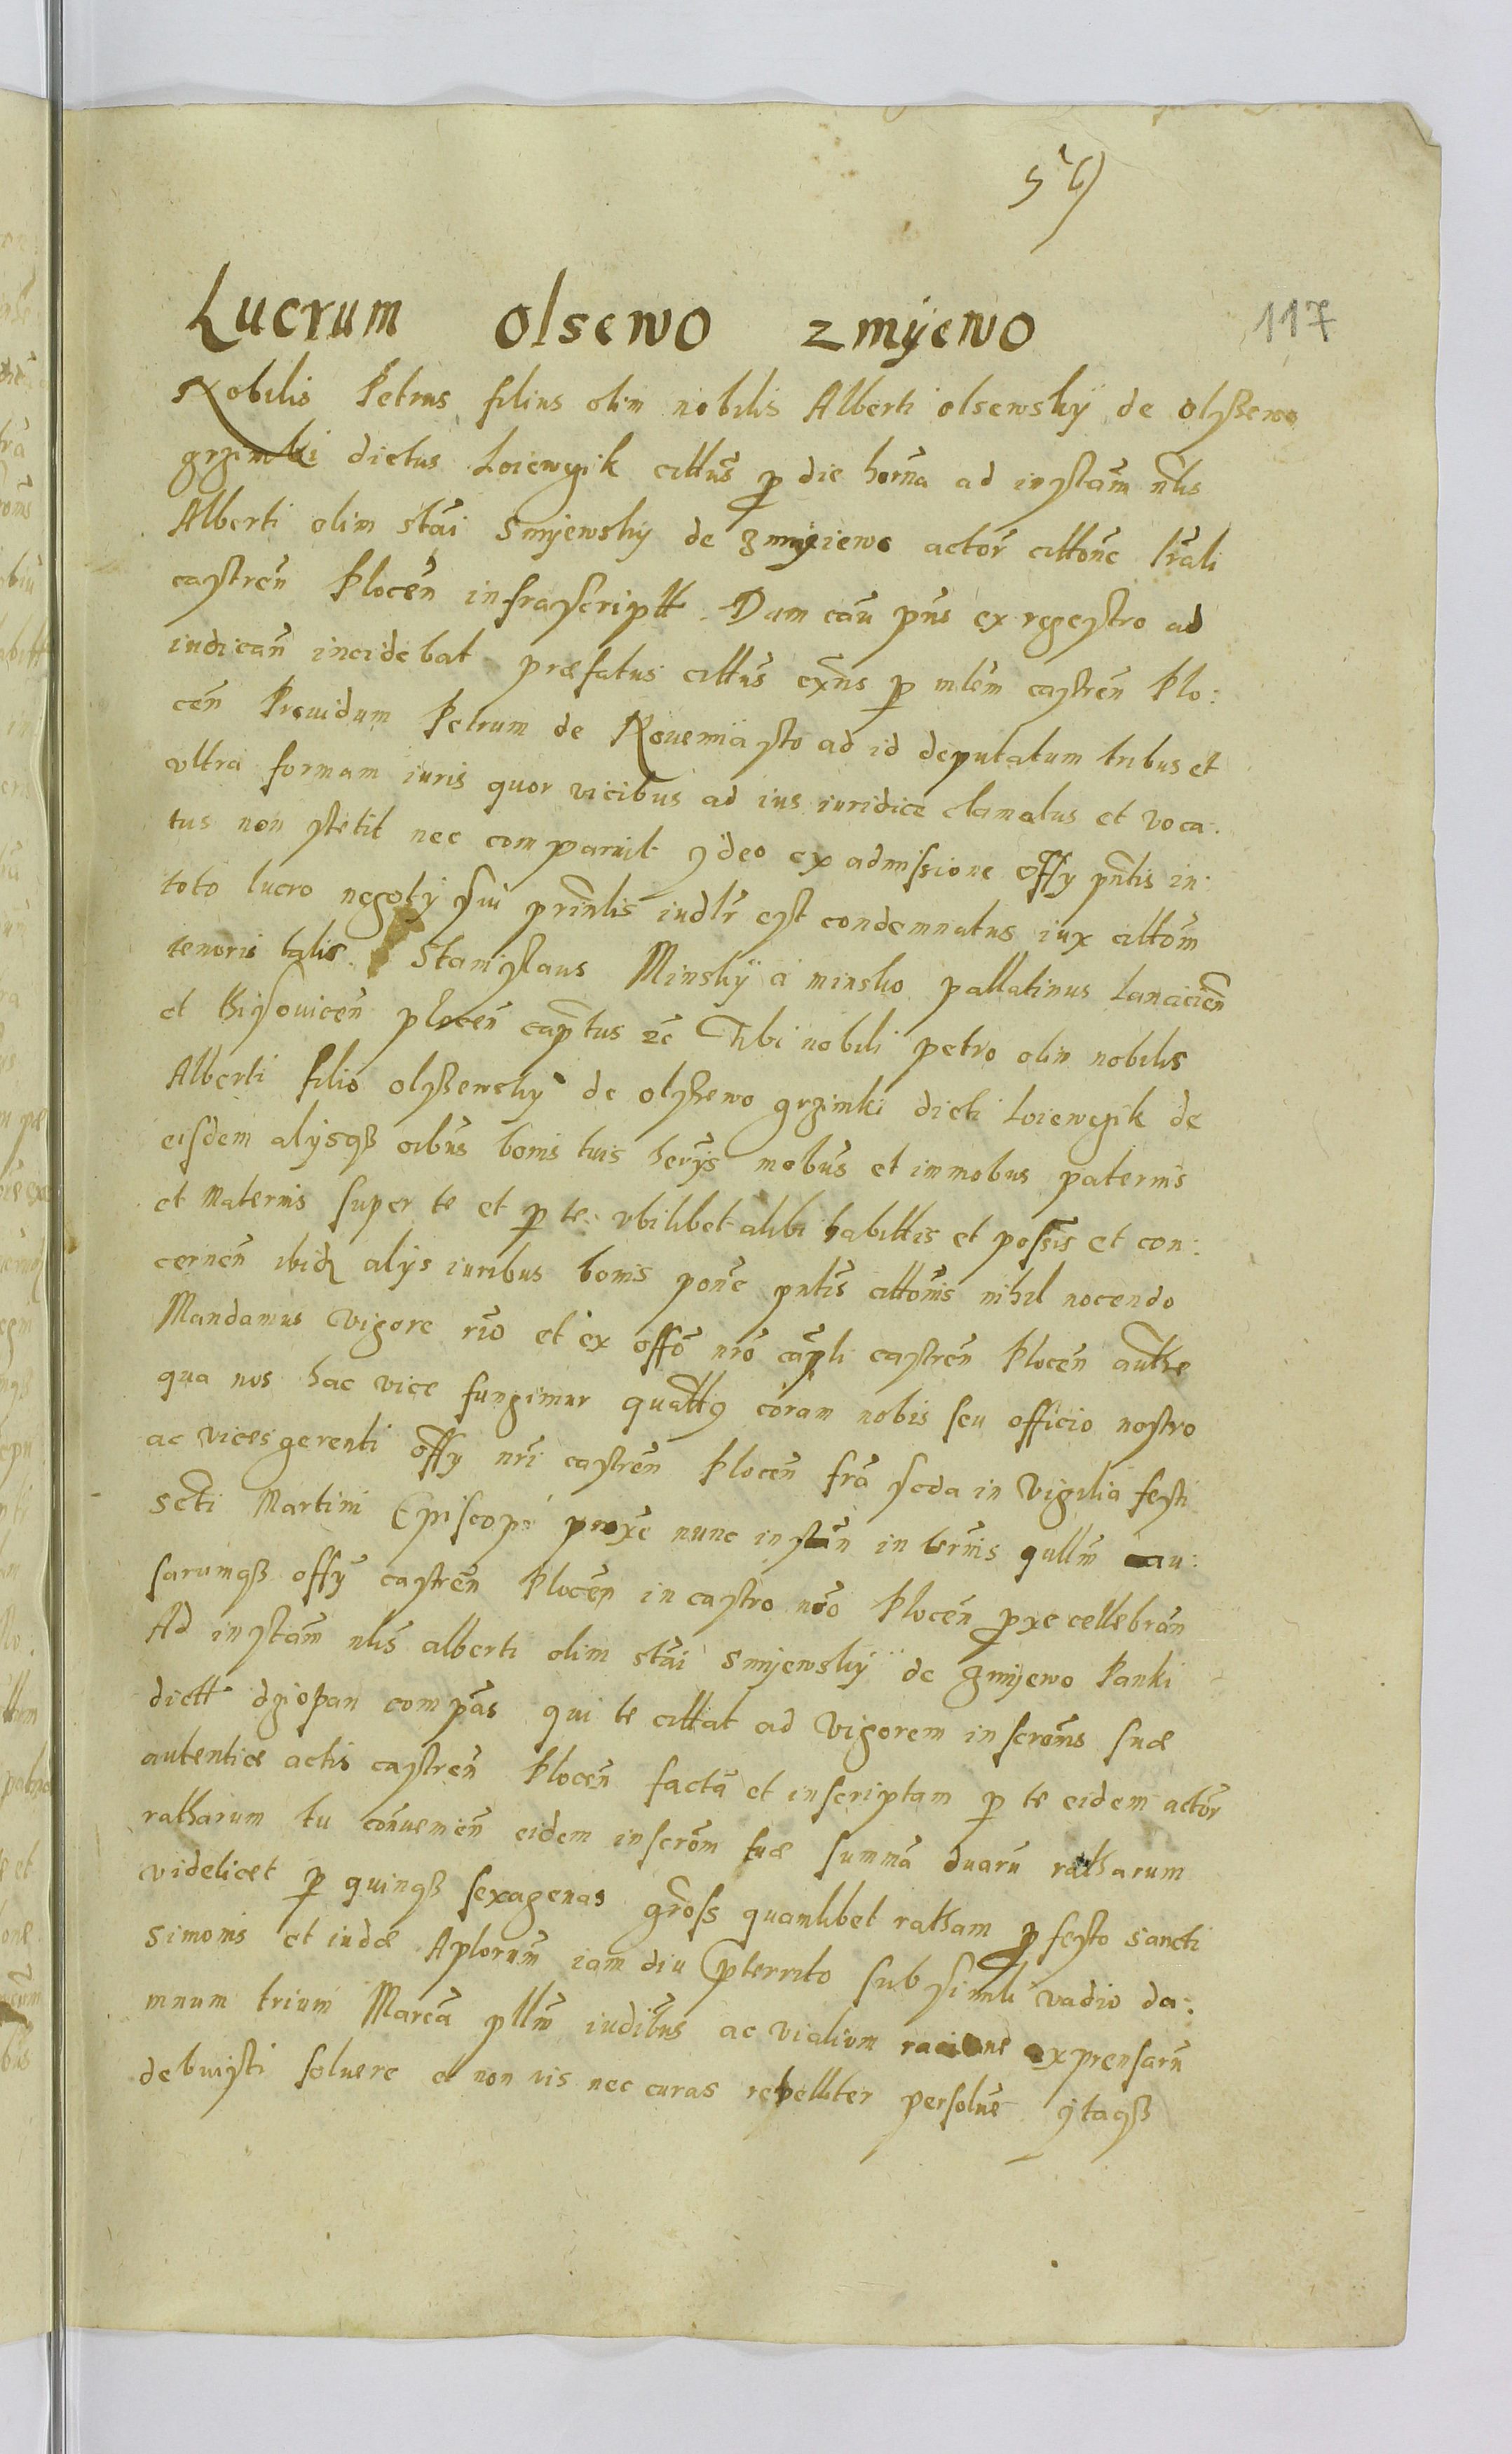 117
Lucrum olsewo zmÿewo
Nobilis Petrus filius olim nobilis Alberti olsewskÿ de olssewo
grzimki dictus Loiewczik cittus̃ p die horña ad instam̃ nlis
Alberti olim stãi Smÿewskÿ de zmÿiewo actor̃ cittoñe lr̃ali
castreñ Ploceñ infrascriptt. Dum cau pñs ex regestro ad
iudicañ incidebat præfatus cittus̃ exñs p mlem̃ castreñ Plo:
ceñ Prouidum Petrum de Nouemiasto ad id deputatum tribus et
vltra formam iuris quor vicibus ad ius iuridice clamatus et voca:
tus non stetit nec comparuit ydeo ex admissione offÿ pñtis in
toto lucro negotÿ sui prinlis iudlr̃ est condemnatus iux cittom̃
tenoris talis. Stanislaus Minskÿ a minsko pallatinus Lanciciеñ
et ploceñ cap̃tus ꝛc Tibi nobili petro olim nobilis
Alberti filio olssewskÿ de olssewo grzimki dicti Loiewczik de
eisdem alÿsqß oibus̃ bonis tuis herÿs mobus̃ et immobus paternis
et Maternis super te et p te vbilibet alibi habittis et possis et con:
cerneñ ibidꝫ alÿs iuribus bonis pone pñtis cittonis nihil nocendo
Mandamus vigore rio et ex offo nr̃o cap̃li castreñ Ploceñ autthe
qua nos hac vice fungimur quatt9 coram nobis seu officio nostro
ac vices gerenti offÿ nr̃i castreñ Ploceñ fr̃a scda in Vigilia festi
Scti Martini Episcopi proxe nunc instañ in termis qullr̃ cau:
sarumqß offÿ castreñ Ploceñ in castro nr̃o Ploceñ pxe cellebrañ
Ad instam̃ nlis alberti olim stãi Smÿewskÿ de zmÿewo Panki
dictt dziopan compas̃ qui te cittat ad Vigorem inscroñis suæ
autenticæ actis castreñ Ploceñ factã et inscriptam p te eidem actor̃
ratharum tu conuenieñ eidem inscrom̃ tuæ summã duarũ ratharum
videlicet p quinqß sexagenas gross quamlibet ratham p festo Sancti
Simonis et iudæ Aplorum̃ iam diu pterrito sub simili vadio da:
mnum trium Marcã pllr̃ iudibus̃ ac vialium racione exprensarũ
debuisti soluere et non vis nec curas rebelliter persolue ytaqß